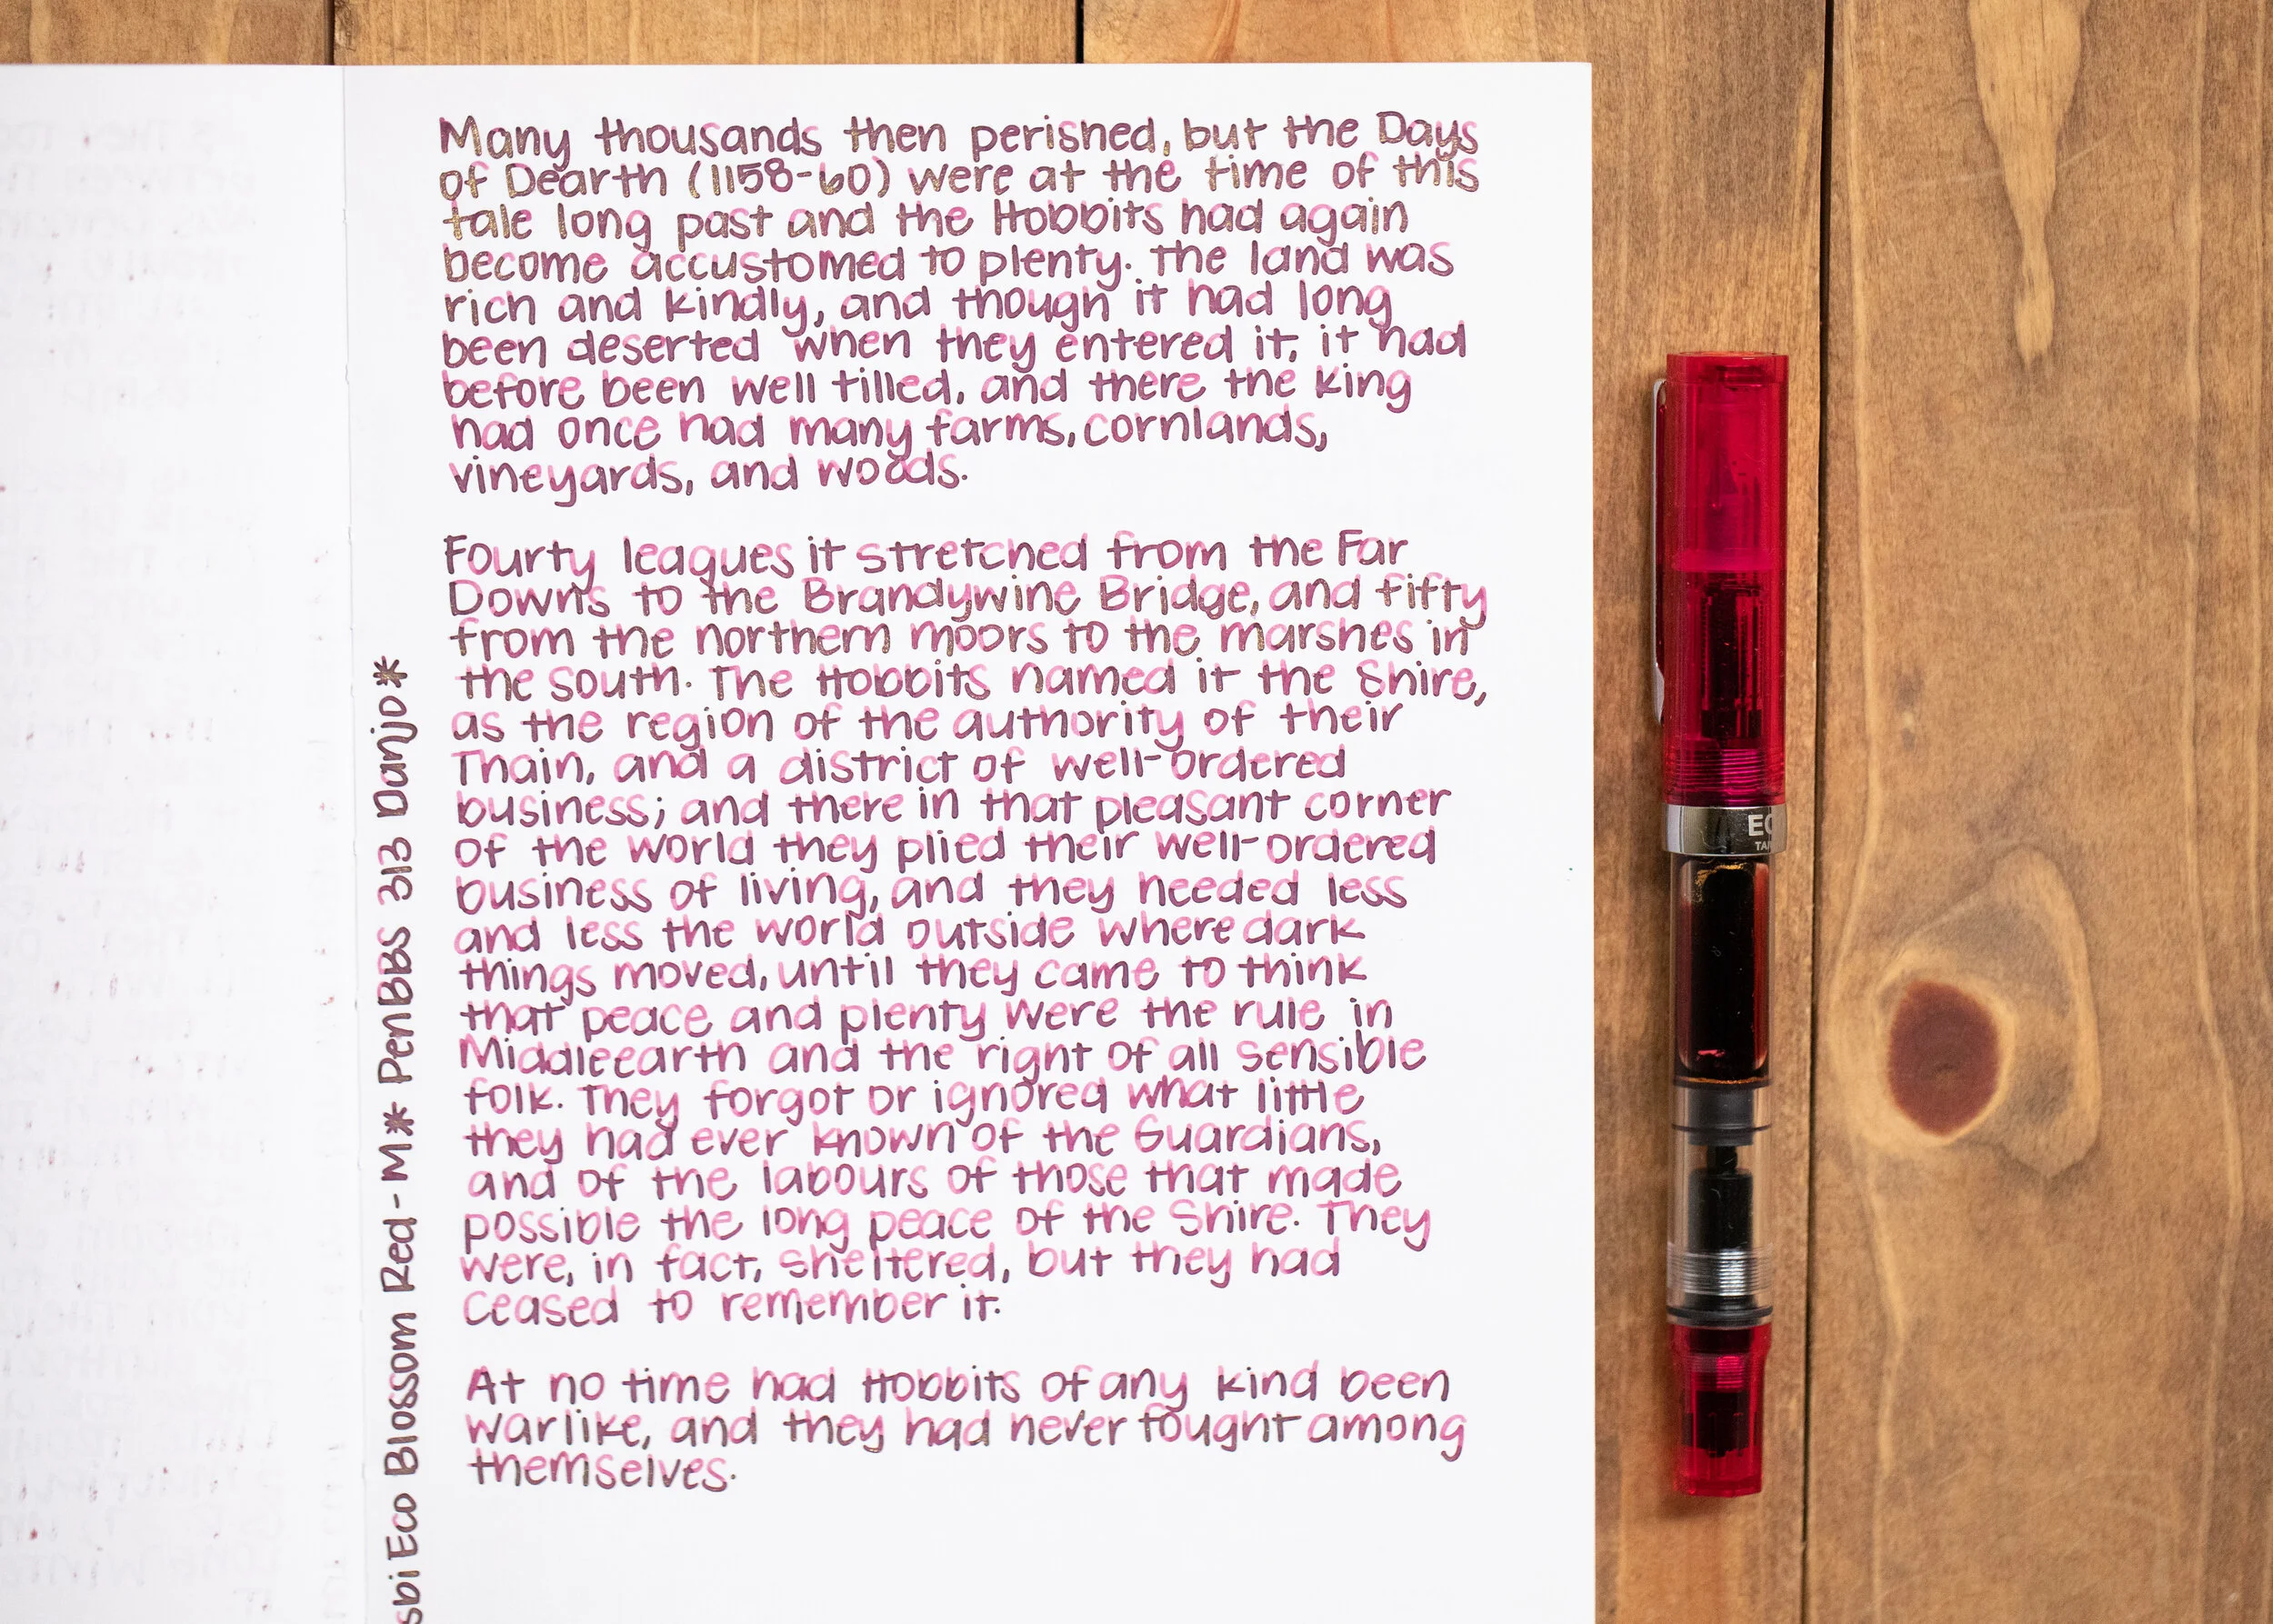 Many thousands then perished, but the Days
of Dearth (1158-60) were at the time of this
tale long past and the Hobbits had again
become accustomed to plenty. The land was
rich and kindly, and though it had long
been deserted when they entered it, it had
before been well tilled, and there the king
had once had many farms, cornlands,
vineyards, and woods.
Fourty leagues it stretched from the Far
Downs to the Brandywine Bridge, and fifty
from the northern moors to the marshes in
the south. The Hobbits named it the Shire,
as the region of the authority of their
Thain, and a district of well-ordered
business; and there in that pleasant corner
of the world they plied their well-ordered
business of living, and they needed less
and less the world outside where dark
things moved, until they came to think
that peace and plenty were the rule in
Middleearth and the right of all sensible
folk. They forgot or ignored what little
they had ever known of the Guardians,
and of the labours of those that made
possible the long peace of the Shire. They
were, in fact, sheltered, but they had
ceased to remember it.
At no time had Hobbits of any kind been
warlike, and they had never fought among
themselves.
sbi Eco Blossom Red-M* PenBBS 313 Danjo*